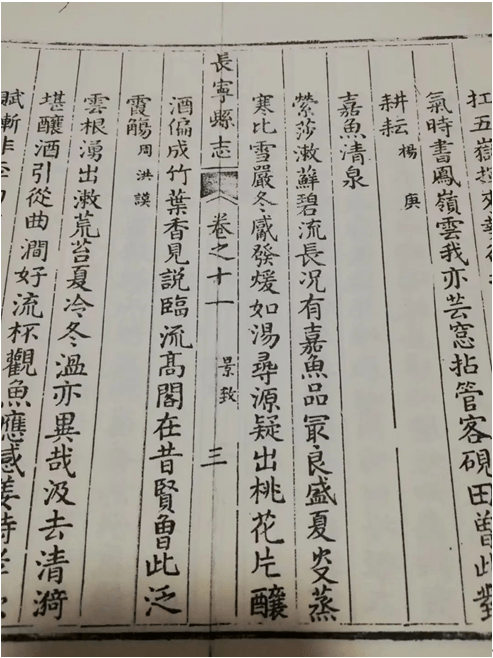 扛五嶽
氣時書鳳嶺雲我亦芸窓拈管客硯田曾此對
耕耘 楊庚
嘉魚清泉
縈莎漱蘚碧流長况有嘉魚品冣良盛夏炎蒸
寒比雪嚴冬觱發煖如湯尋源疑出桃花片釀
長寧縣志 卷之十一 景致 三
酒偏成竹葉香見説臨流髙閣在昔賢曾此泛
霞觴 周洪謨
雲根湧出漱荒苔夏冷冬溫亦異哉汲去清漪
堪釀酒引從曲澗好流杯觀魚應感姜詩
賦